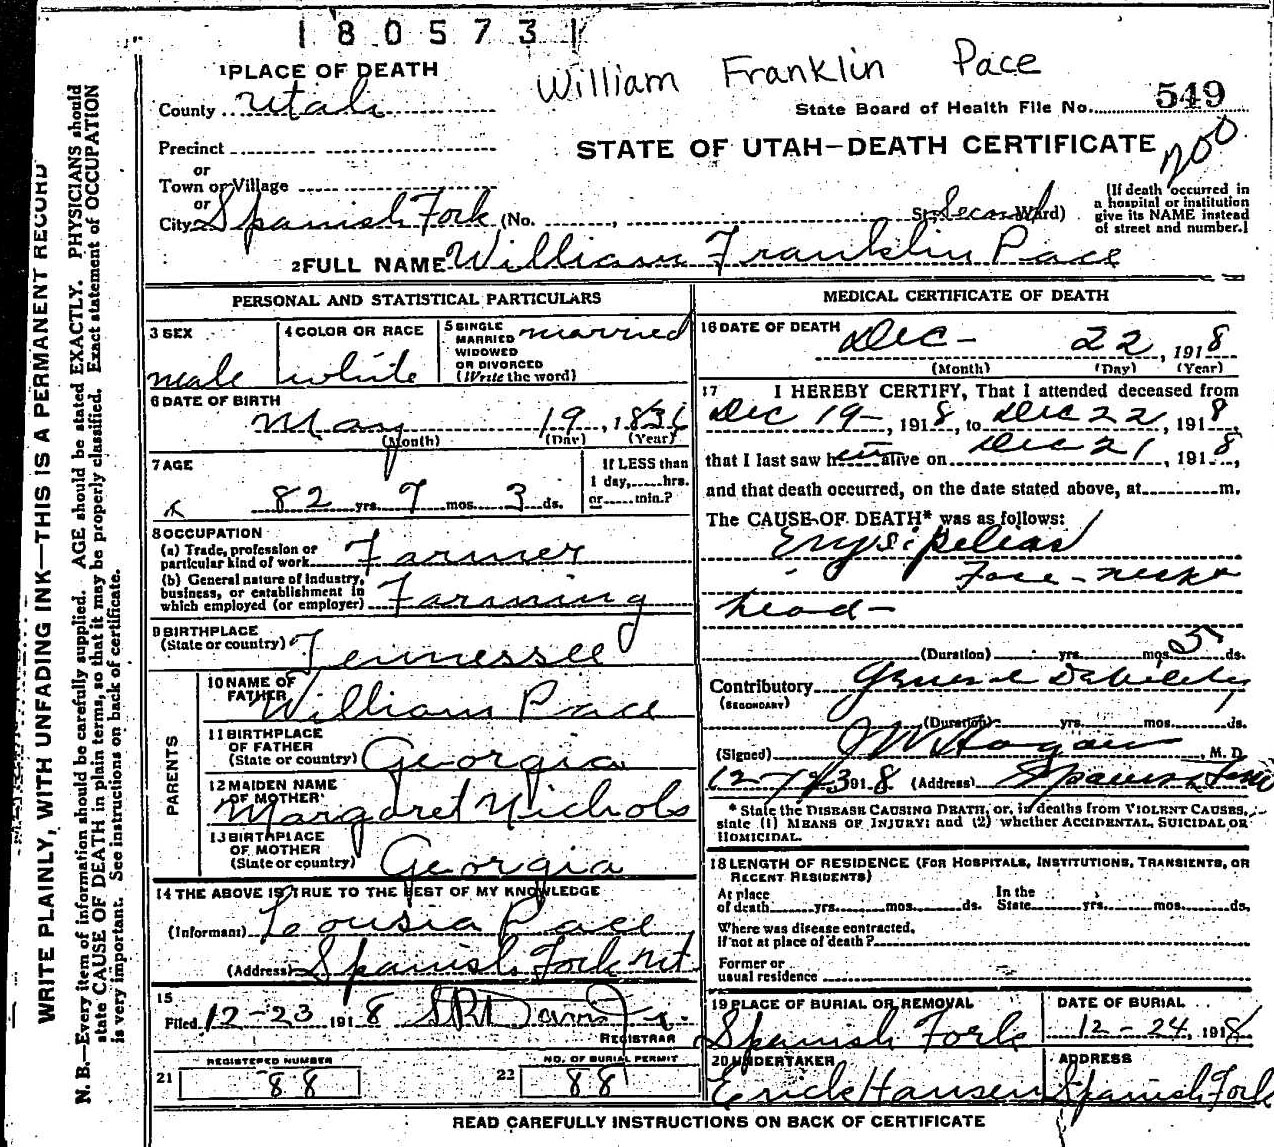 180573
William Franklin Pace
1 PLACE OF DEATH
County Utah
State Board of Health File No. 549
Precinct
STATE OF UTAH—DEATH CERTIFICATE
700
or
Town or Village
or
City Spanish Fork (No. , St. Second Ward)
(If death occurred in
a hospital or institution
give its NAME instead
of street and number.)
2 FULL NAME William Franklin Pace
PERSONAL AND STATISTICAL PARTICULARS
3 SEX
male
4 COLOR OR RACE
white
5 SINGLE
MARRIED
WIDOWED
OR DIVORCED
(Write the word)
married
6 DATE OF BIRTH
May 19, 1836
(Month) (Day) (Year)
7 AGE
82 yrs. 7 mos. 3 ds.
If LESS than
1 day, hrs.
or min.?
8 OCCUPATION
(a) Trade, profession or
particular kind of work Farmer
(b) General nature of industry,
business, or establishment in
which employed (or employer) Farming
9 BIRTHPLACE
(State or country) Tennessee
PARENTS
10 NAME OF
FATHER William Pace
11 BIRTHPLACE
OF FATHER
(State or country) Georgia
12 MAIDEN NAME
OF MOTHER Margaret Nichols
13 BIRTHPLACE
OF MOTHER
(State or country) Georgia
14 THE ABOVE IS TRUE TO THE BEST OF MY KNOWLEDGE
(Informant) Lousia Pace
(Address) Spanish Fork Ut.
15
Filed 12-23 1918
REGISTRAR
REGISTERED NUMBER
21 88
NO. OF BURIAL PERMIT
22 88
MEDICAL CERTIFICATE OF DEATH
16 DATE OF DEATH
Dec- 22, 1918
(Month) (Day) (Year)
17 I HEREBY CERTIFY, That I attended deceased from
Dec 19-, 1918, to Dec 22, 1918,
that I last saw him alive on Dec 21, 1918,
and that death occurred, on the date stated above, at m.
The CAUSE OF DEATH* was as follows:
Erysipelias
Face - neck
head-
(Duration) yrs. mos. 5 ds.
Contributory General Debility
(SECONDARY)
(Duration) yrs. mos. ds.
(Signed) J W Hagan, M. D.
12-23 1918 (Address) Spanish Fork
* State the DISEASE CAUSING DEATH, or, in deaths from VIOLENT CAUSES,
state (1) MEANS OF INJURY; and (2) whether ACCIDENTAL, SUICIDAL OR
HOMICIDAL.
18 LENGTH OF RESIDENCE (FOR HOSPITALS, INSTITUTIONS, TRANSIENTS, OR
RECENT RESIDENTS)
At place
of death yrs. mos. ds.
In the
State yrs. mos. ds.
Where was disease contracted,
if not at place of death?
Former or
usual residence
19 PLACE OF BURIAL OR REMOVAL
Spanish Fork
DATE OF BURIAL
12-24, 1918
20 UNDERTAKER
Erick Hansen
ADDRESS
Spanish Fork
READ CAREFULLY INSTRUCTIONS ON BACK OF CERTIFICATE
WRITE PLAINLY, WITH UNFADING INK—THIS IS A PERMANENT RECORD
N. B.—Every item of information should be carefully supplied. AGE should be stated EXACTLY. PHYSICIANS should
state CAUSE OF DEATH in plain terms, so that it may be properly classified. Exact statement of OCCUPATION
is very important. See instructions on back of certificate.